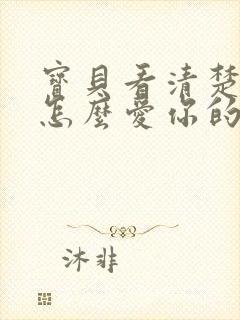 寶貝看清楚
怎麼愛你的
沐非